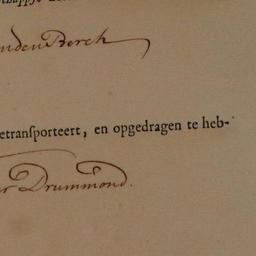 nden Berch
etransporteert, en opgedragen te heb-
er Drummond.